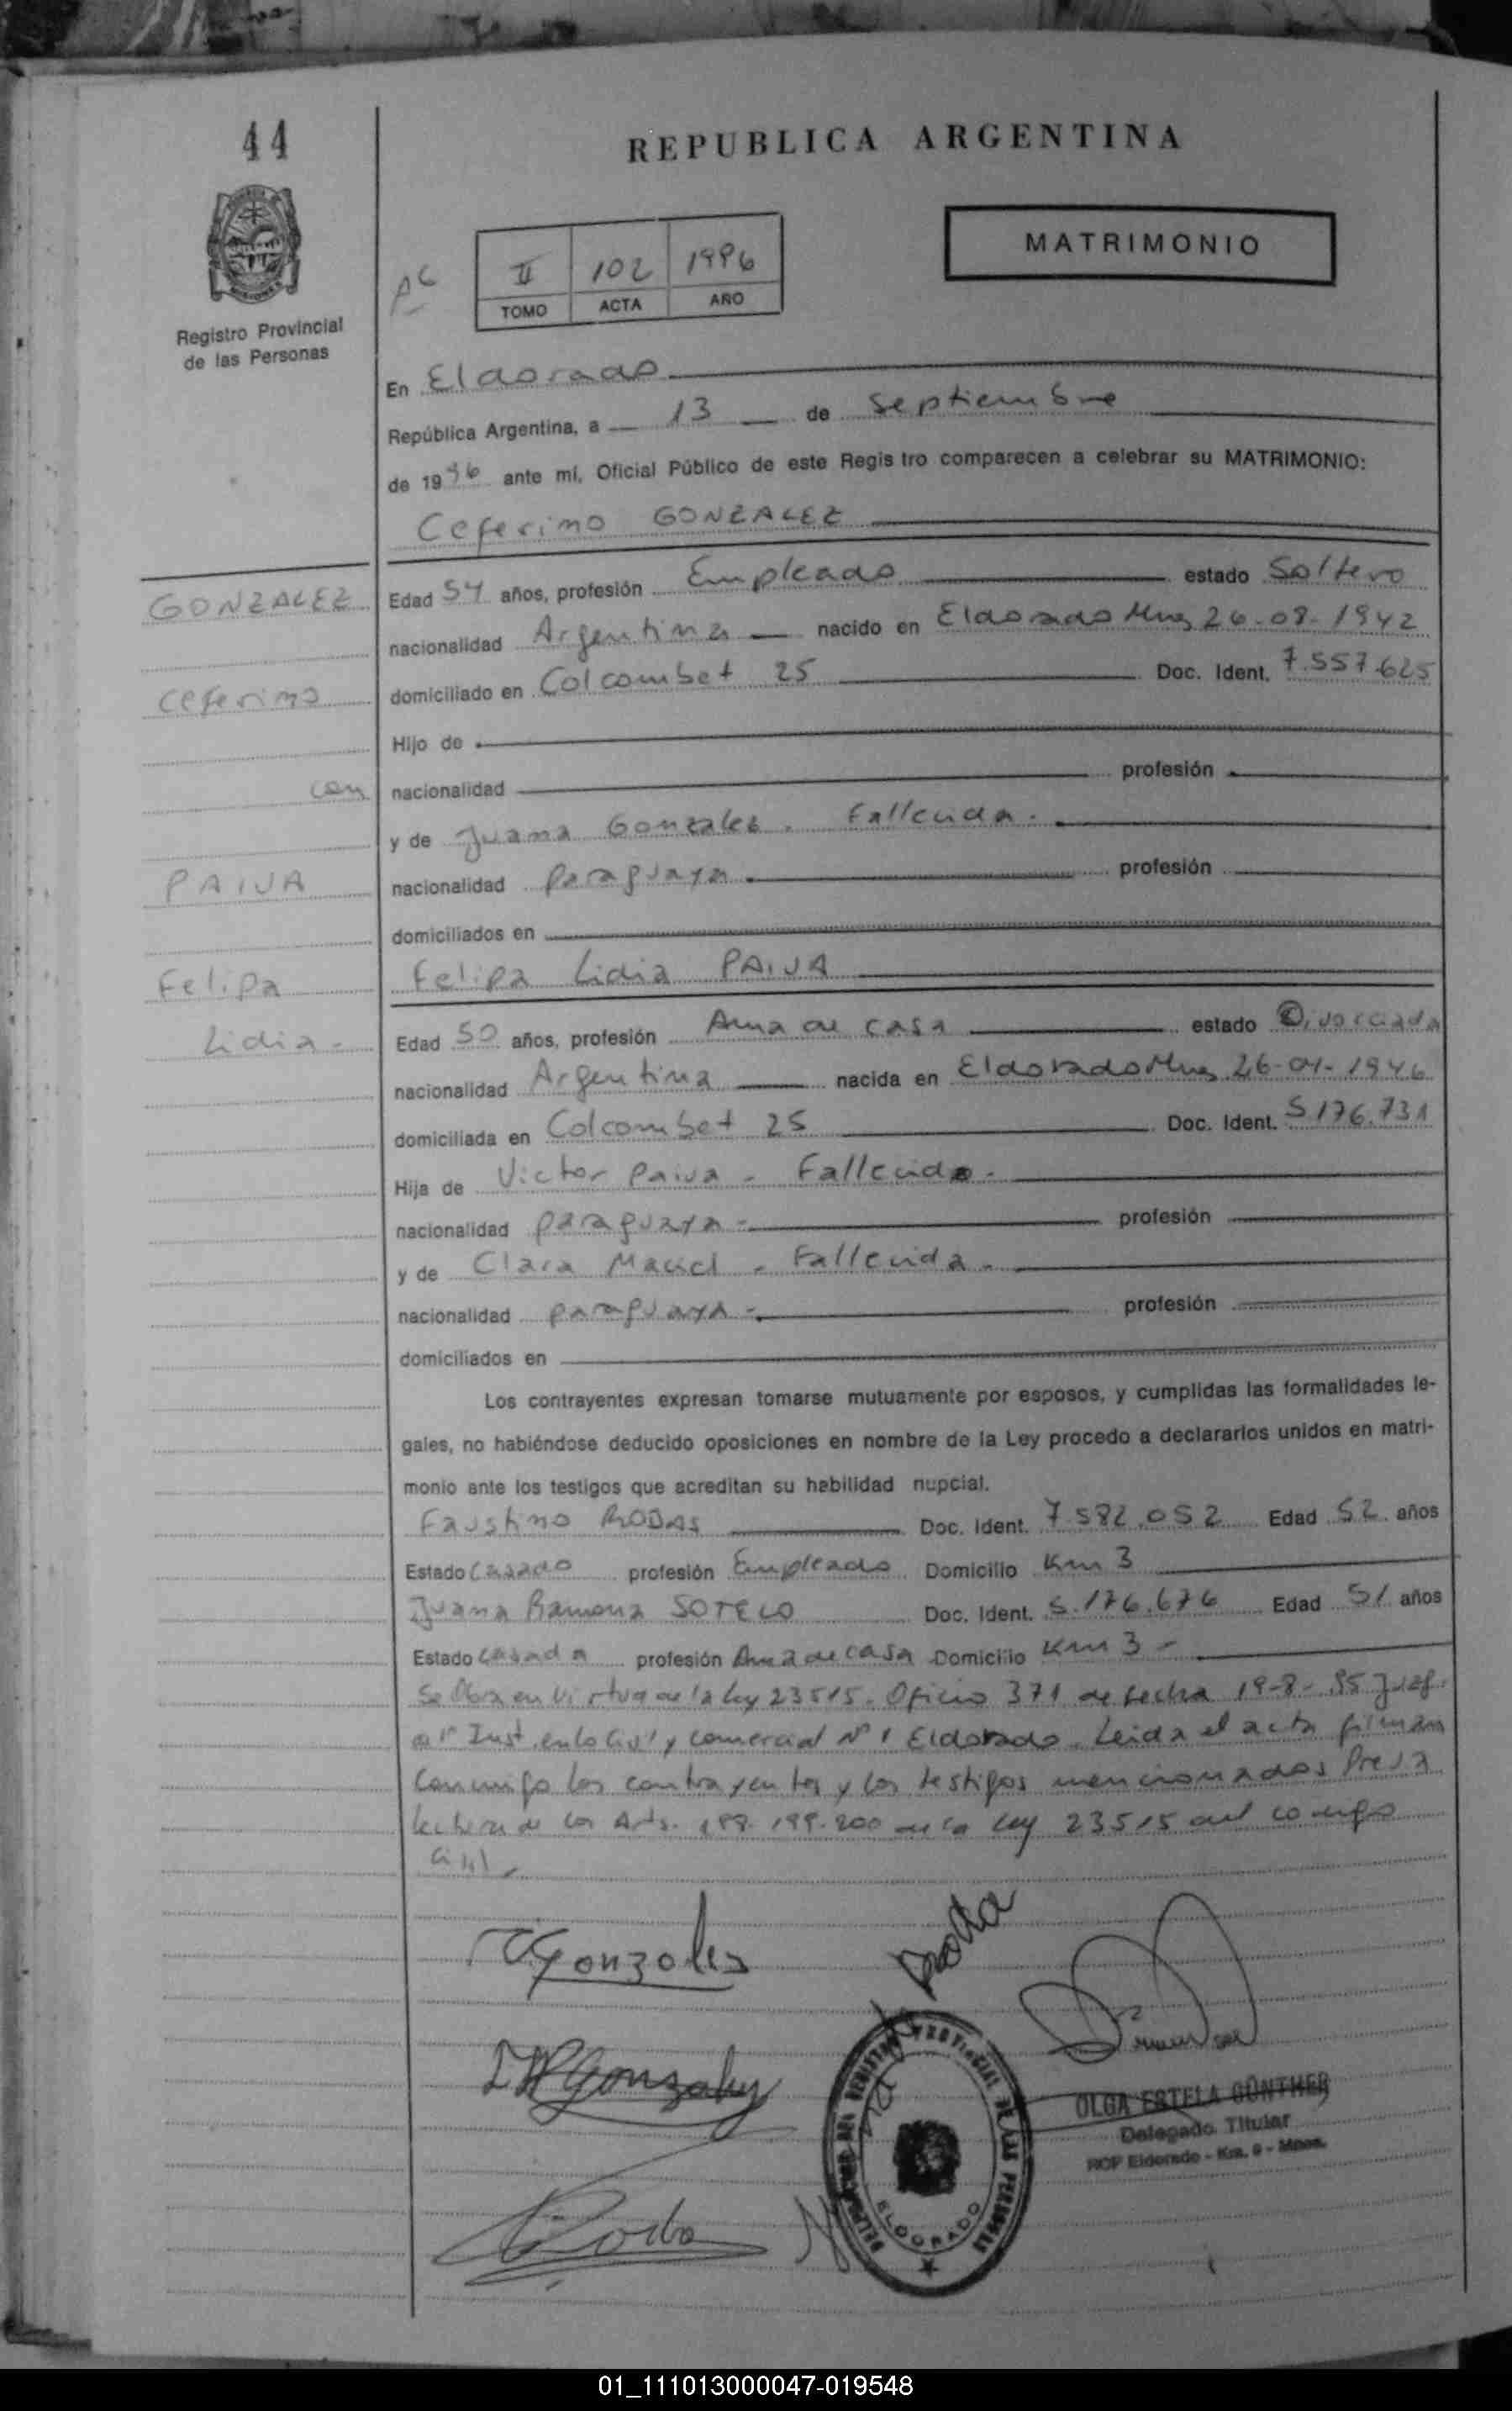 44
REPUBLICA ARGENTINA
MATRIMONIO
II 102 1996
TOMO ACTA AÑO
Registro Provincial
de las Personas
En Eldorado
República Argentina, a 13 de Septiembre
de 1996 ante mí, Oficial Público de este Regis tro comparecen a celebrar su MATRIMONIO:
Ceferino GONZALEZ
GONZALEZ
Edad 54 años, profesión Empleado estado Soltero
nacionalidad Argentina nacido en Eldorado Mnes 26-08-1942
Ceferino
domiciliado en Colcombet 25 Doc. Ident. 7.557.625
Hijo de
con
nacionalidad profesión
y de Juana Gonzalez. Fallecida.
PAIVA
nacionalidad paraguaya. profesión
domiciliados en
Felipa
Felipa Lidia PAIVA
Lidia-
Edad 50 años, profesión Ama de casa estado Divorciada
nacionalidad Argentina nacida en Eldorado Mnes 26-04-1946
domiciliada en Colcombet 25 Doc. Ident. 5.176.731
Hija de Victor Paiva - Fallecido-
nacionalidad paraguaya- profesión
y de Clara Maciel - Fallecida-
nacionalidad paraguaya- profesión
domiciliados en
Los contrayentes expresan tomarse mutuamente por esposos, y cumplidas las formalidades le-
gales, no habiéndose deducido oposiciones en nombre de la Ley procedo a declararlos unidos en matri-
monio ante los testigos que acreditan su habilidad nupcial.
Faustino RODAS Doc. Ident. 7.582.052 Edad 52 años
Estado Casado profesión Empleado Domicilio Km 3
Juana Ramona SOTELO Doc. Ident. 5.176.676 Edad 51 años
Estado Casada profesión Ama de casa Domicilio Km 3-
Se Obra en virtud de la ley 23515. Oficio 371 de fecha 19-8-95 Juzg.
de 1ª Inst. en lo Civil y comercial Nº 1 Eldorado. Leida el acta firman
Conmigo los contrayentes y los testigos mencionados Previa
lectura de los Arts. 198-199-200 de la ley 23515 del codigo
Civil-
CGonzales
Gonzalez
OLGA ESTELA GÜNTHER
Delegado Titular
RCP Eldorado - Km. 9 - Mnes.
Rodas
ELDORADO
01_111013000047-019548